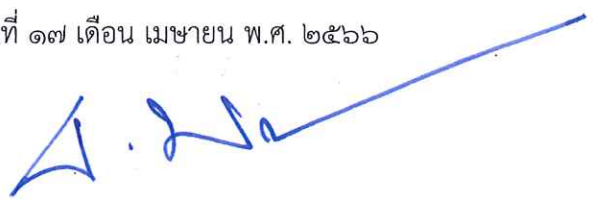 ที่ ๑๗ เดือน เมษายน พ.ศ. ๒๕๖๖